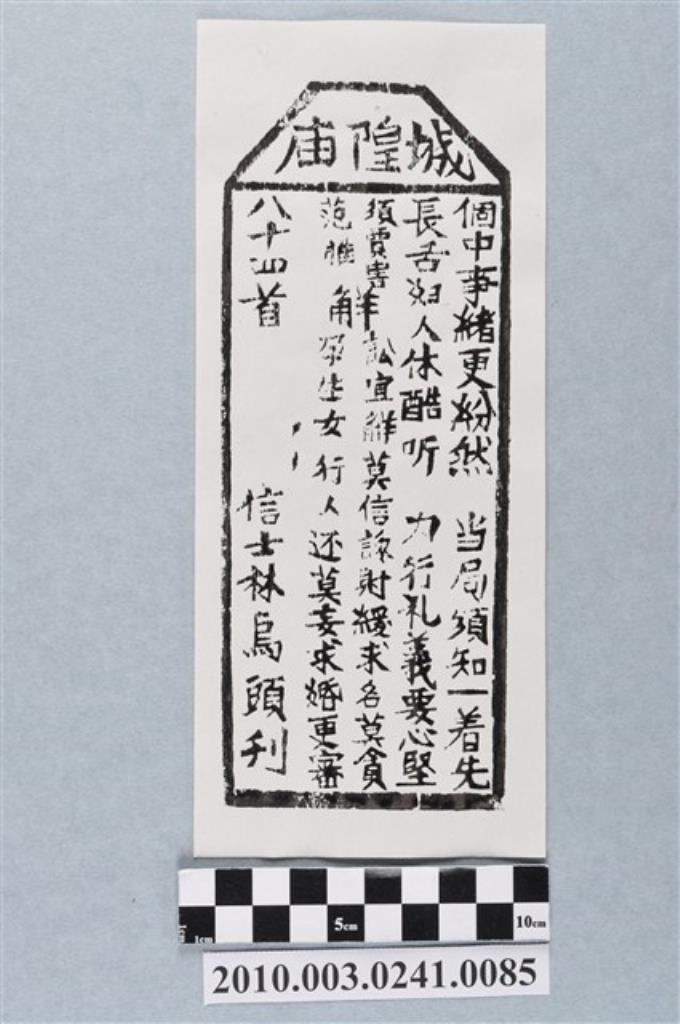 城隍庙
個中事緒更紛然 当局須知一着先
長舌妇人休酷听 力行礼義要心堅
須賈害 解 訟宜解莫信謀財緩求名莫貪
范雎 孕生女行人还莫妄求婚更審
八十四首 信士林烏頭刋
5cm 10cm
1cm
2010.003.0241.0085